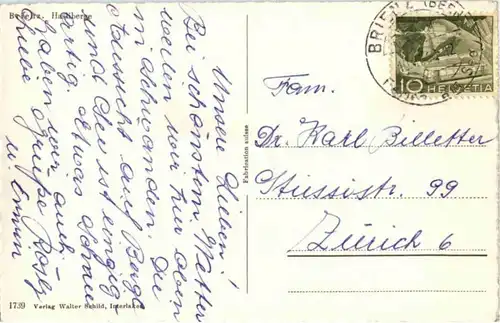 Brienz, Haslberge
Unsere Lieben!
Bei schönstem Wetter
weilen wir hier oben
in Schwanden. Die
Aussicht auf Berge
und See ist einzig-
artig. Etwas Schnee
haben wir auch.
Liebe Grüsse Rösy
u.
1739 Verlag Walter Schild, Interlaken
Fabrication suisse
BRIENZ
10
HELVETIA
Fam.
Dr. Karl Billetter
Stüssistr. 99
Zürich 6